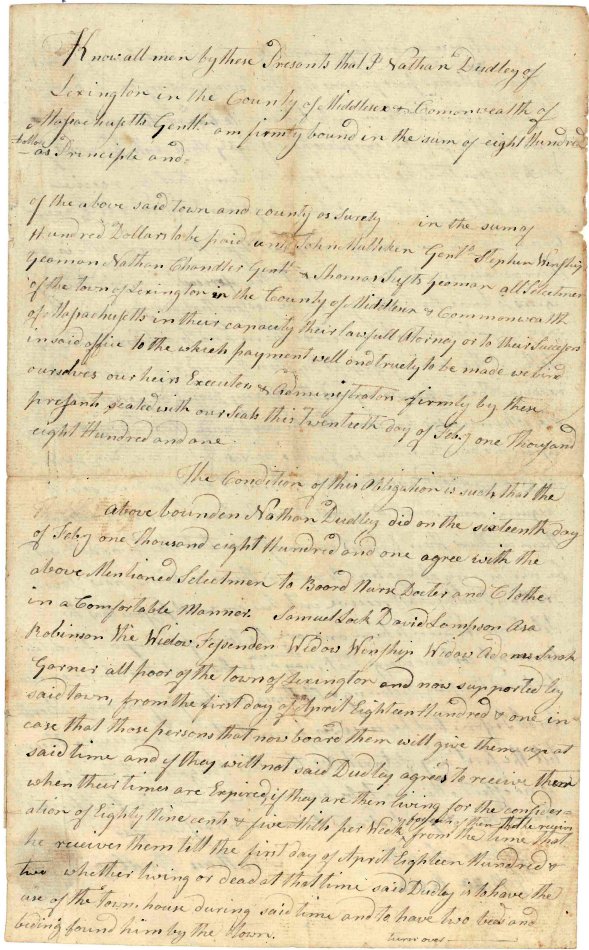 Know all men by these Presants that I Nathan Dudley of
Lexington in the County of Middlesex & Comonwealth of
Massachusetts Gentln am firmly bound in the sum of eight Hundred
dollars
as Principle and
of the above said town and county as Surety in the sum of
Hundred Dollars to be paid unto John Mulliken Gentn Stephen Winship
yeoman Nathan Chandler Gentn & Thomas Tufts yeoman all Selectmen
of the town of Lexington in the County of Middlesex & Commonwealth
of Massachusetts in their capacity their lawfull Atorney or to their Successors
in said office to the which payment well and truely to be made we bind
ourselves our heirs Executors & Administrators firmly by these
presants sealed with our Seals this twentieth day of Feby one thousand
eight Hundred and one
The Condition of this Obligation is such that the
above bounden Nathan Dudley did on the sixteenth day
of Feby one thousand eight Hundred and one agree with the
above Mentioned Selectmen to Board Nurse Docter and Clothe
in a Comfortable Mannor. Samuel Lock David Lampson Asa
Robinson the Widow Fessenden Widow Winship Widow Adams Sarah
Garner all poor of the town of Lexington and now supported by
said town, from the first day of April Eighteen Hundred & one in
case that those persons that now board them will give them up at
said time and if they will not said Dudley agrees to receive them
when their times are Expired, if they are then living for the consider-
ation of Eighty Nine cents & five Mills per Week from the time that
he receives them till the first day of April Eighteen Hundred &
two whether living or dead at that time said Dudley is to have the
use of the town house during said time and to have two beds and
beding found him by the town.
turn over